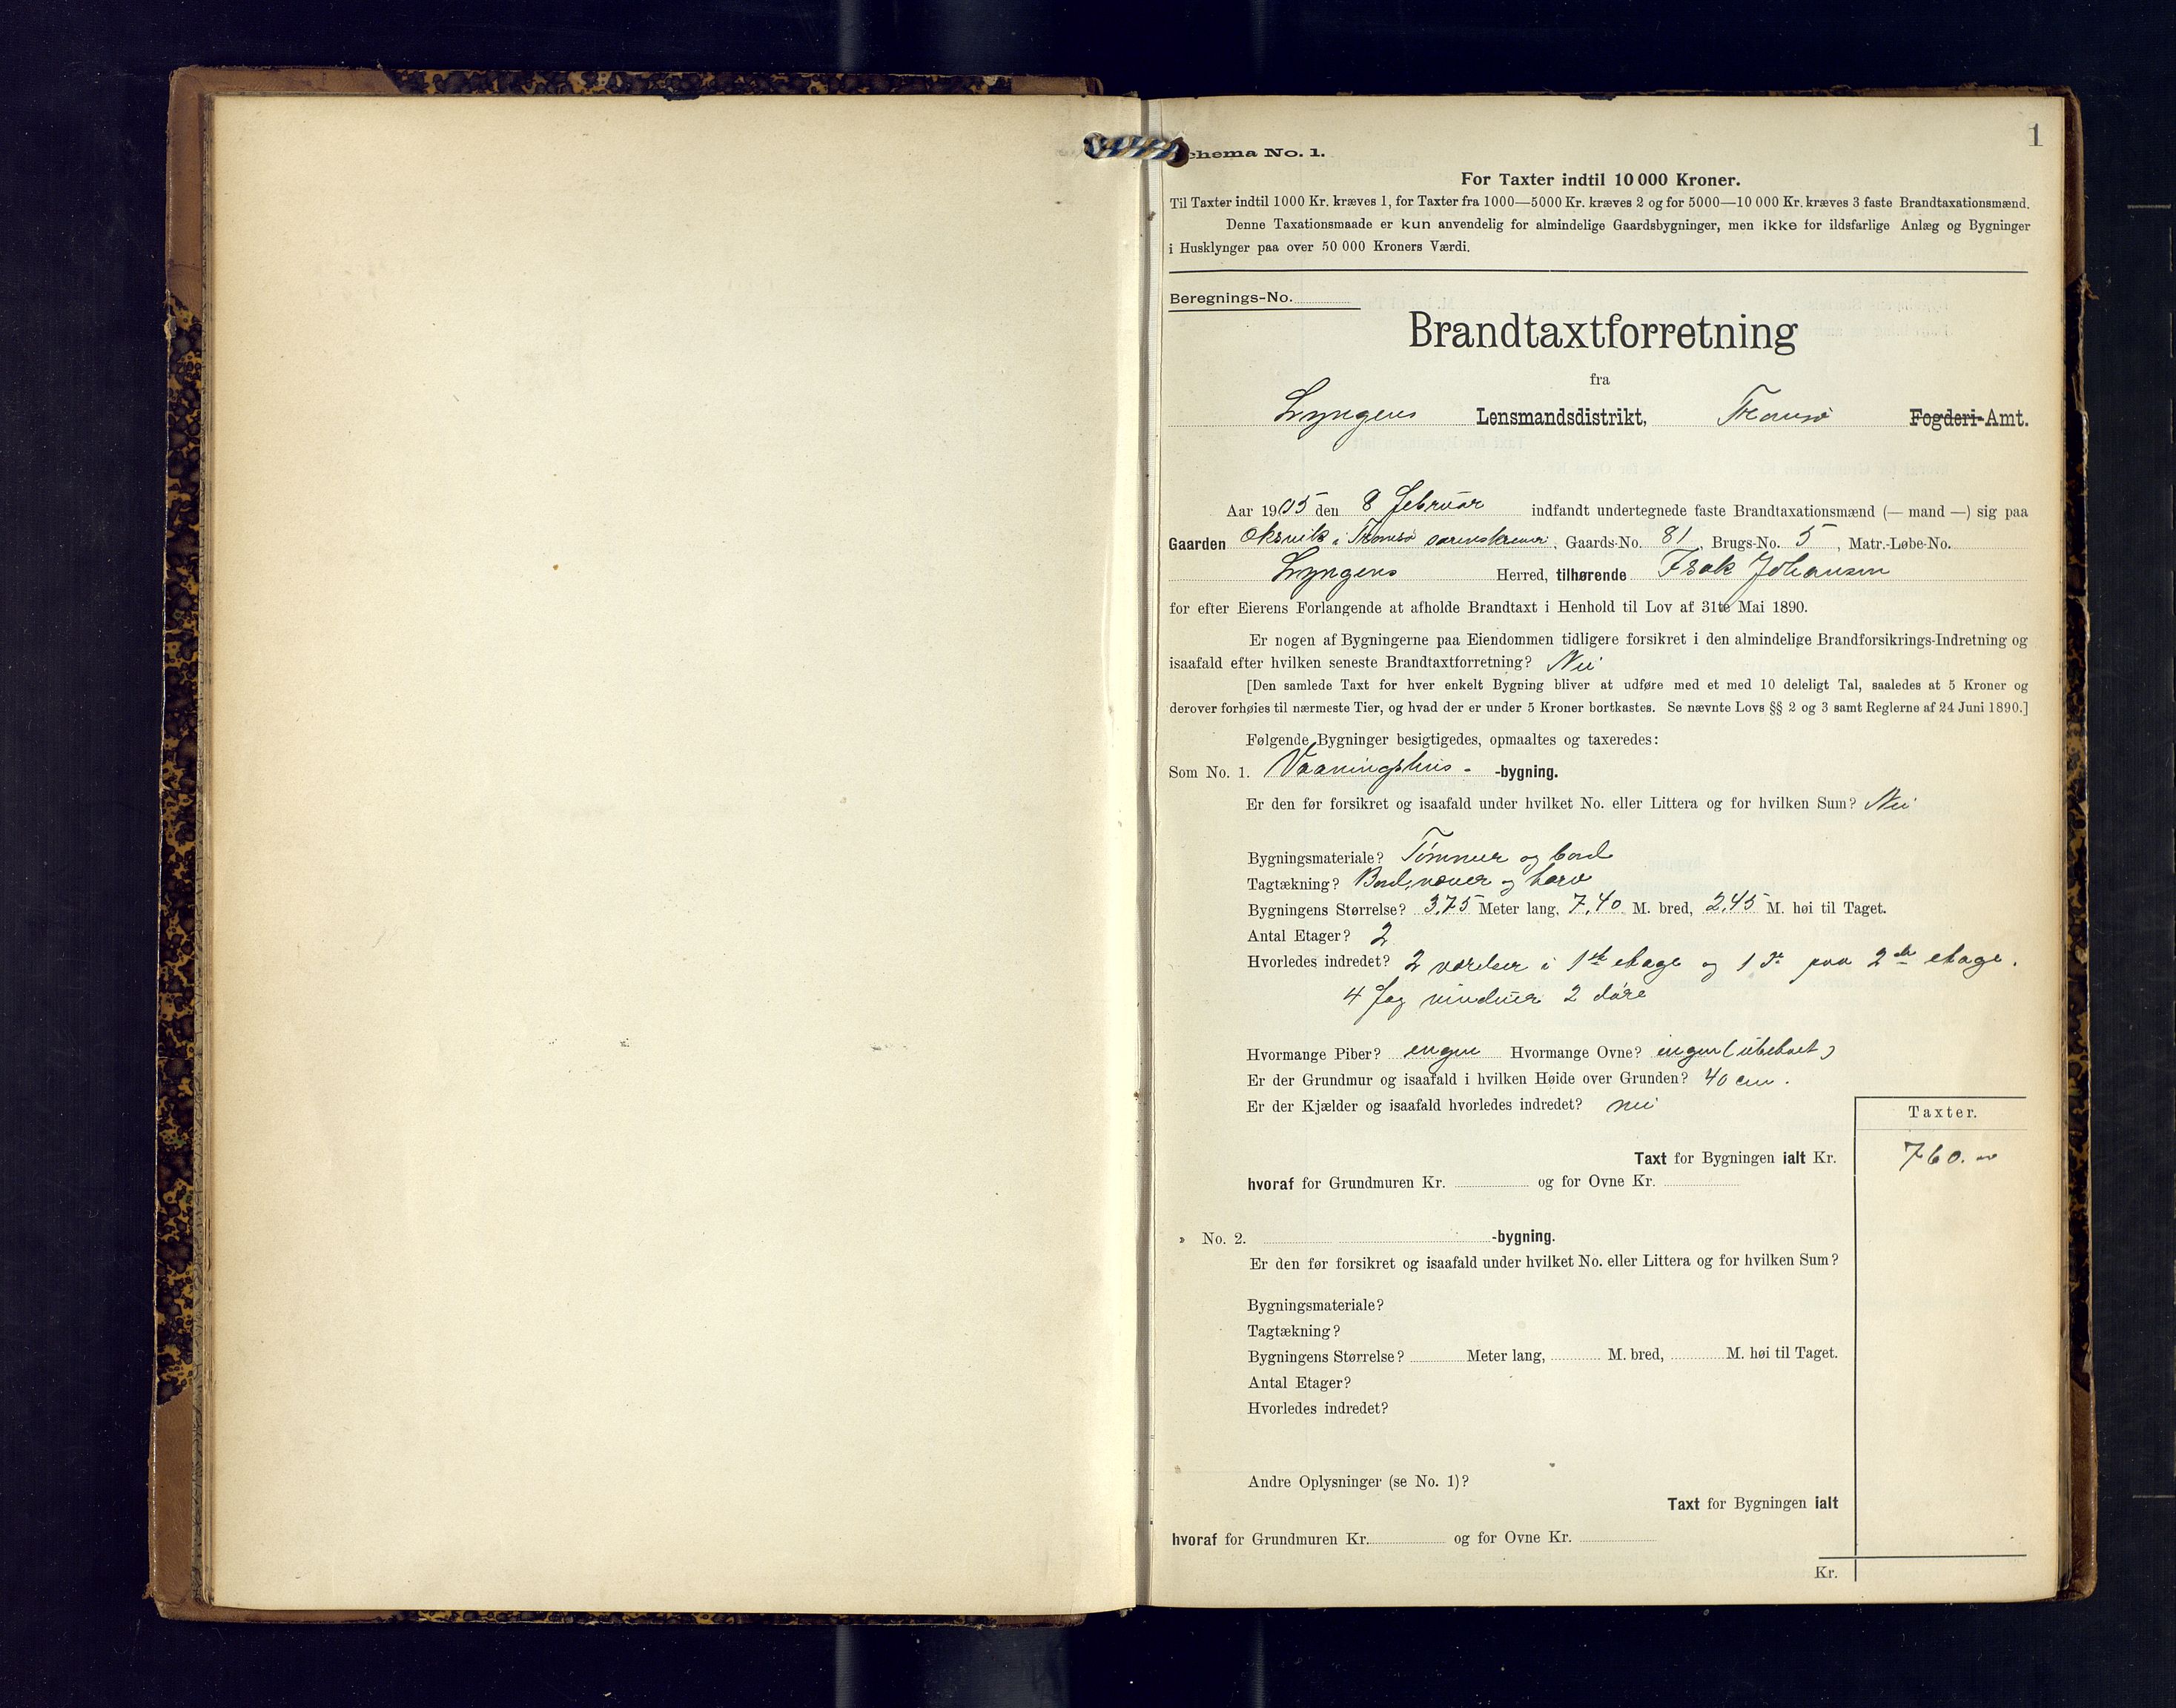 1
chema No. 1.
For Taxter indtil 10 000 Kroner.
Til Taxter indtil 1000 Kr. kræves 1, for Taxter fra 1000—5000 Kr. kræves 2 og for 5000—10 000 Kr. kræves 3 faste Brandtaxationsmænd.
Denne Taxationsmaade er kun anvendelig for almindelige Gaardsbygninger, men ikke for ildsfarlige Anlæg og Bygninger
i Husklynger paa over 50 000 Kroners Værdi.
Beregnings-No.
Brandtaxtforretning
fra
Lyngens Lensmandsdistrikt, Tromsø Fogderi-Amt.
Aar 1905 den 8 Februar indfandt undertegnede faste Brandtaxationsmænd (— mand —) sig paa
Gaarden Oksvik i Tromsø sorenskriveri, Gaards-No. 81, Brugs-No. 5, Matr.-Løbe-No.
Lyngens Herred, tilhørende Isak Johansen
for efter Eierens Forlangende at afholde Brandtaxt i Henhold til Lov af 31te Mai 1890.
Er nogen af Bygningerne paa Eiendommen tidligere forsikret i den almindelige Brandforsikrings-Indretning og
isaafald efter hvilken seneste Brandtaxtforretning? Nei
[Den samlede Taxt for hver enkelt Bygning bliver at udføre med et med 10 deleligt Tal, saaledes at 5 Kroner og
derover forhøies til nærmeste Tier, og hvad der er under 5 Kroner bortkastes. Se nævnte Lovs §§ 2 og 3 samt Reglerne af 24 Juni 1890.]
Følgende Bygninger besigtigedes, opmaaltes og taxeredes:
Som No. 1. Vaaningshus - -bygning.
Er den før forsikret og isaafald under hvilket No. eller Littera og for hvilken Sum? Nei
Bygningsmateriale? Tømmer og bord
Tagtækning? Bord, næver og torv
Bygningens Størrelse? 3,75 Meter lang, 7,40 M. bred, 2,45 M. høi til Taget.
Antal Etager? 2
Hvorledes indredet? 2 værelser i 1ste etage og 1 do paa 2de etage.
4 fag vinduer 2 døre
Hvormange Piber? ingen Hvormange Ovne? ingen (ubeboet)
Er der Grundmur og isaafald i hvilken Høide over Grunden? 40 cm.
Er der Kjælder og isaafald hvorledes indredet? nei
Taxter.
Taxt for Bygningen ialt Kr. 760.
hvoraf for Grundmuren Kr. og for Ovne Kr.
» No. 2. -bygning.
Er den før forsikret og isaafald under hvilket No. eller Littera og for hvilken Sum?
Bygningsmateriale?
Tagtækning?
Bygningens Størrelse? Meter lang, M. bred, M. høi til Taget.
Antal Etager?
Hvorledes indredet?
Andre Oplysninger (se No. 1)?
Taxt for Bygningen ialt
hvoraf for Grundmuren Kr. og for Ovne Kr.
Kr.